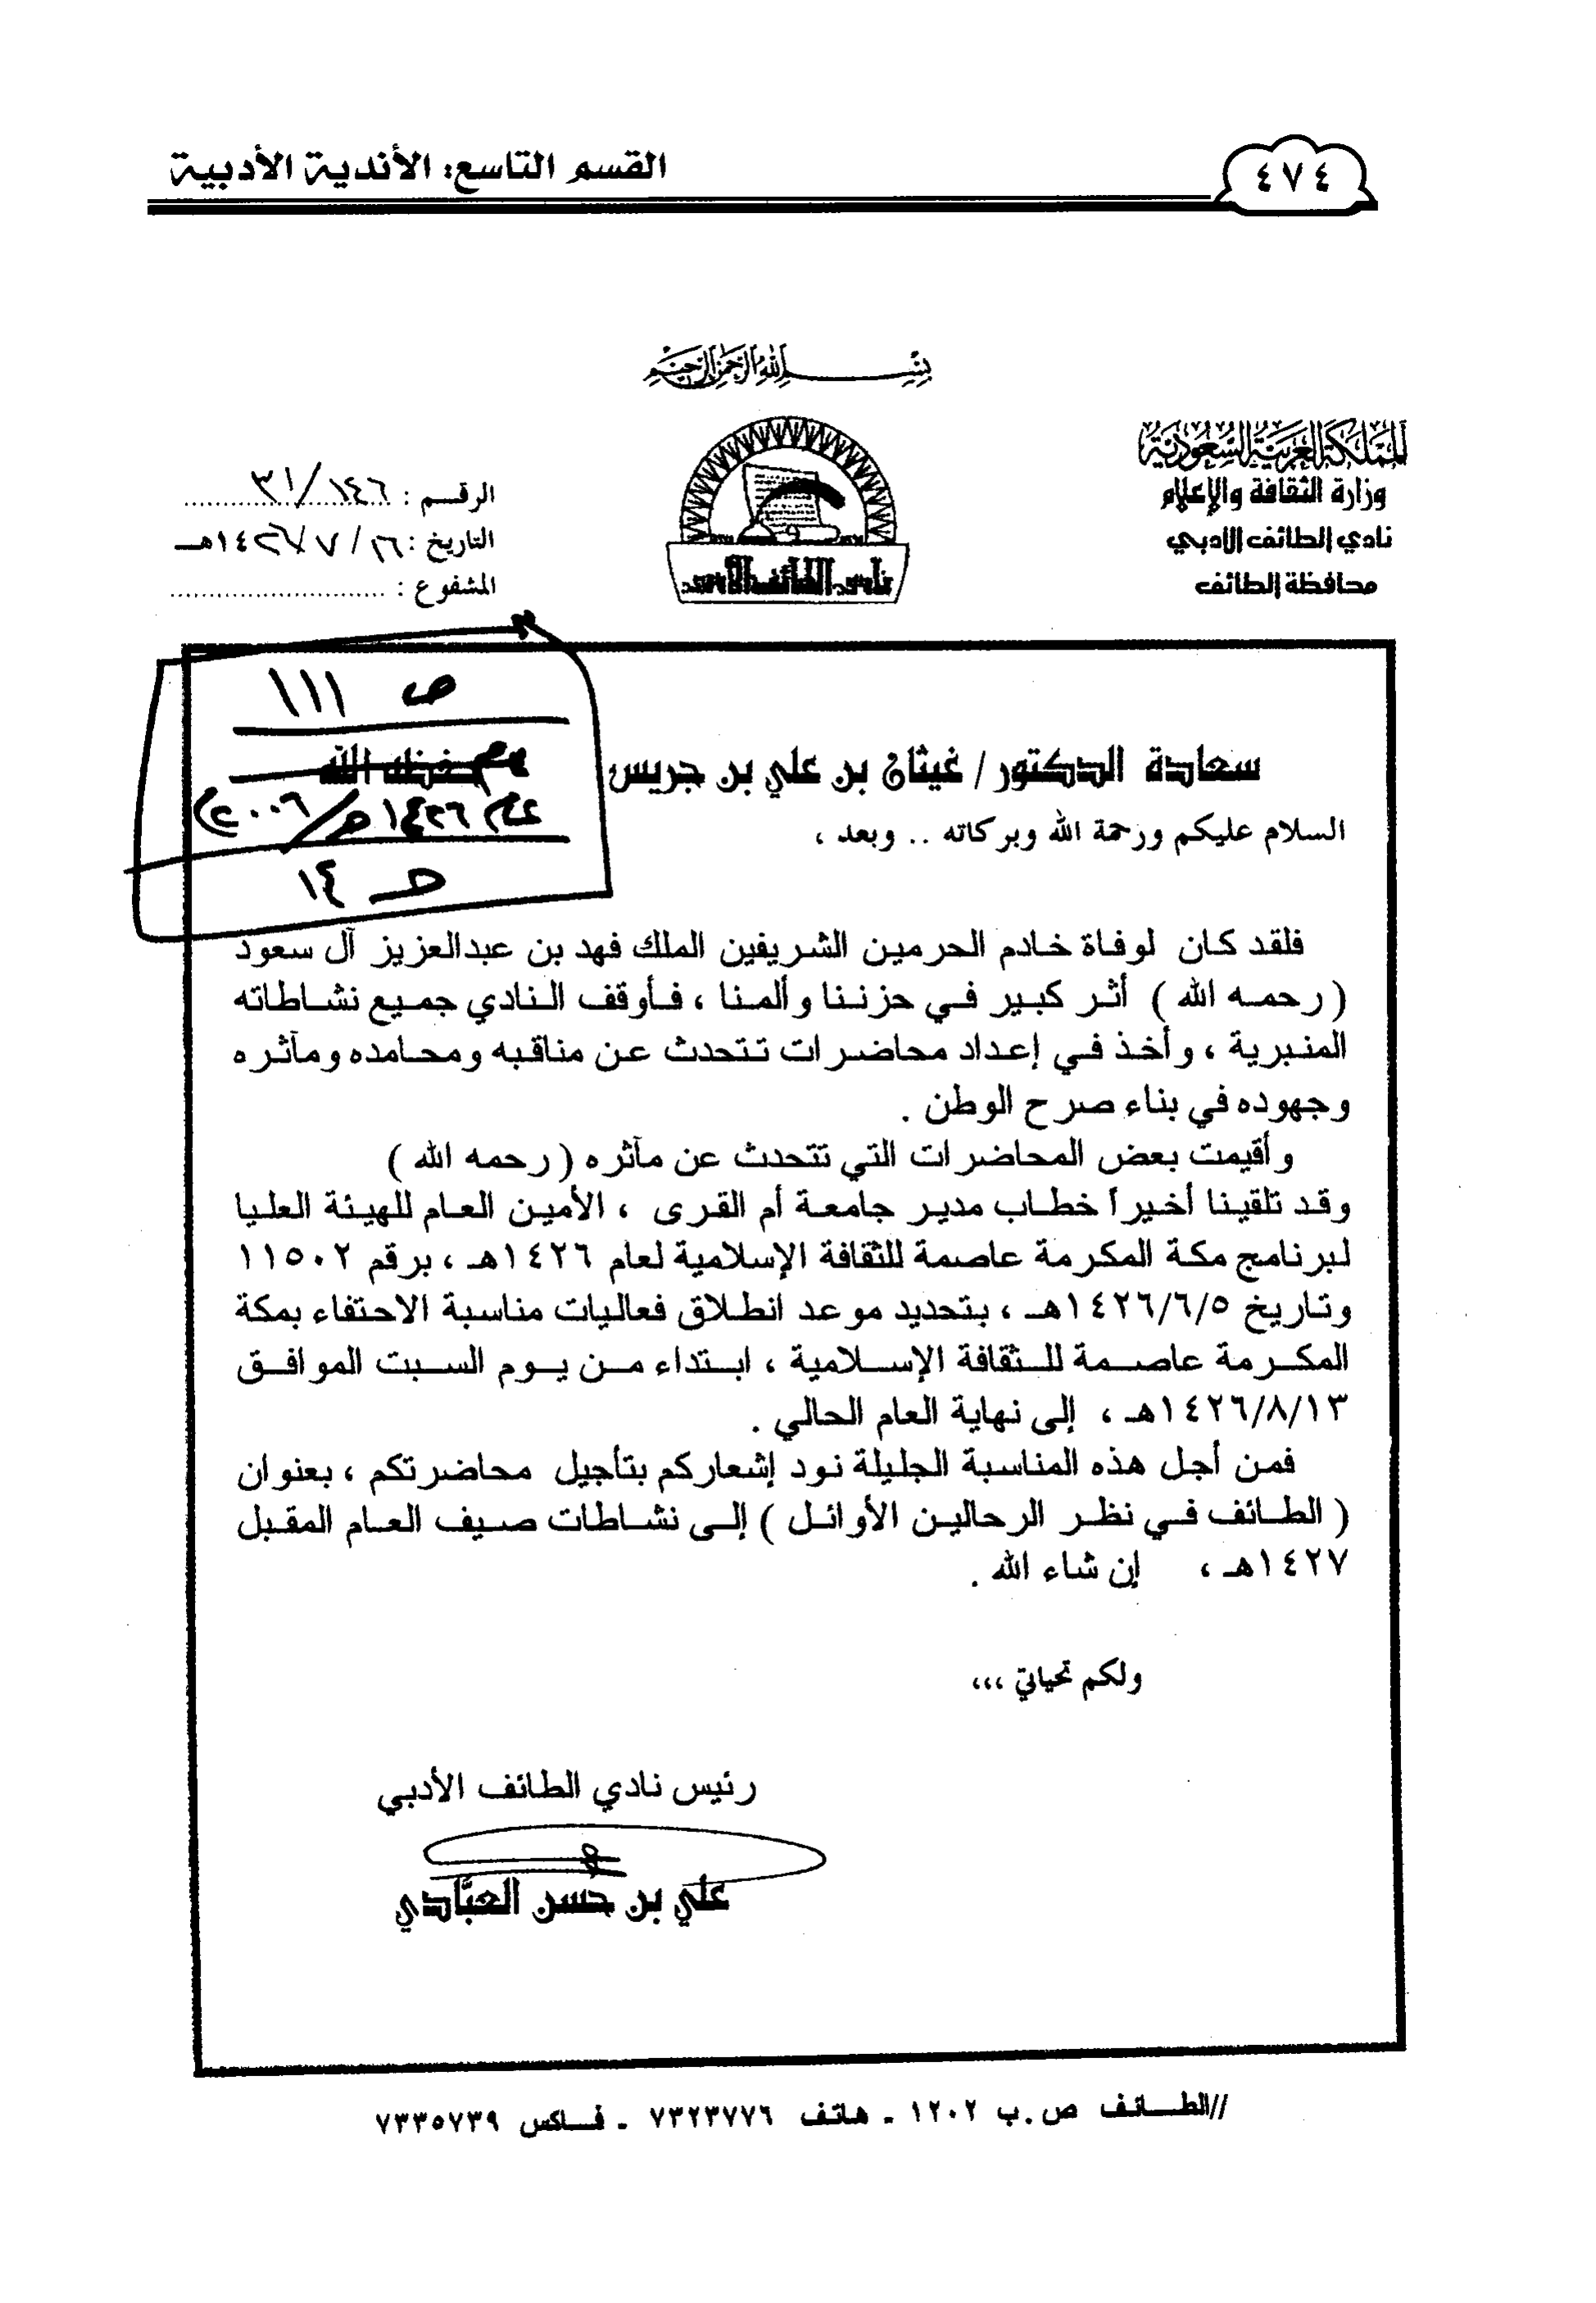 ٤٧٤
القسم التاسع: الأندية الأدبية
بسم الله الرحمن الرحيم
المملكة العربية السعودية
وزارة الثقافة والإعلام
نادي الطائف الأدبي
محافظة الطائف
نادي الطائف الأدبي
الرقم : ٣١/١٤٦
التاريخ : ٢٦/٧/١٤٢٦هـ
المشفوع :
ص ١١١
عام ١٤٢٦هـ/٢٠٠٦م
حـ ١٤
سعادة الدكتور / غيثان بن علي بن جريس حفظه الله
السلام عليكم ورحمة الله وبركاته .. وبعد ،
فلقد كان لوفاة خادم الحرمين الشريفين الملك فهد بن عبدالعزيز آل سعود
( رحمه الله ) أثر كبير في حزننا وألمنا ، فأوقف النادي جميع نشاطاته
المنبرية ، وأخذ في إعداد محاضرات تتحدث عن مناقبه ومحامده ومآثره
وجهوده في بناء صرح الوطن .
وأقيمت بعض المحاضرات التي تتحدث عن مآثره ( رحمه الله )
وقد تلقينا أخيراً خطاب مدير جامعة أم القرى ، الأمين العام للهيئة العليا
لبرنامج مكة المكرمة عاصمة للثقافة الإسلامية لعام ١٤٢٦هـ ، برقم ١١٥٠٢
وتاريخ ١٤٢٦/٦/٥هـ ، بتحديد موعد انطلاق فعاليات مناسبة الاحتفاء بمكة
المكرمة عاصمة للثقافة الإسلامية ، ابتداء من يوم السبت الموافق
١٤٢٦/٨/١٣هـ ، إلى نهاية العام الحالي .
فمن أجل هذه المناسبة الجليلة نود إشعاركم بتأجيل محاضرتكم ، بعنوان
( الطائف في نظر الرحالين الأوائل ) إلى نشاطات صيف العام المقبل
١٤٢٧هـ ، إن شاء الله .
ولكم تحياتي ،،،
رئيس نادي الطائف الأدبي
علي بن حسن العبّادي
//الطائف ص.ب ١٢٠٢ - هاتف ٧٣٢٣٧٧٦ - فاكس ٧٣٣٥٧٣٩